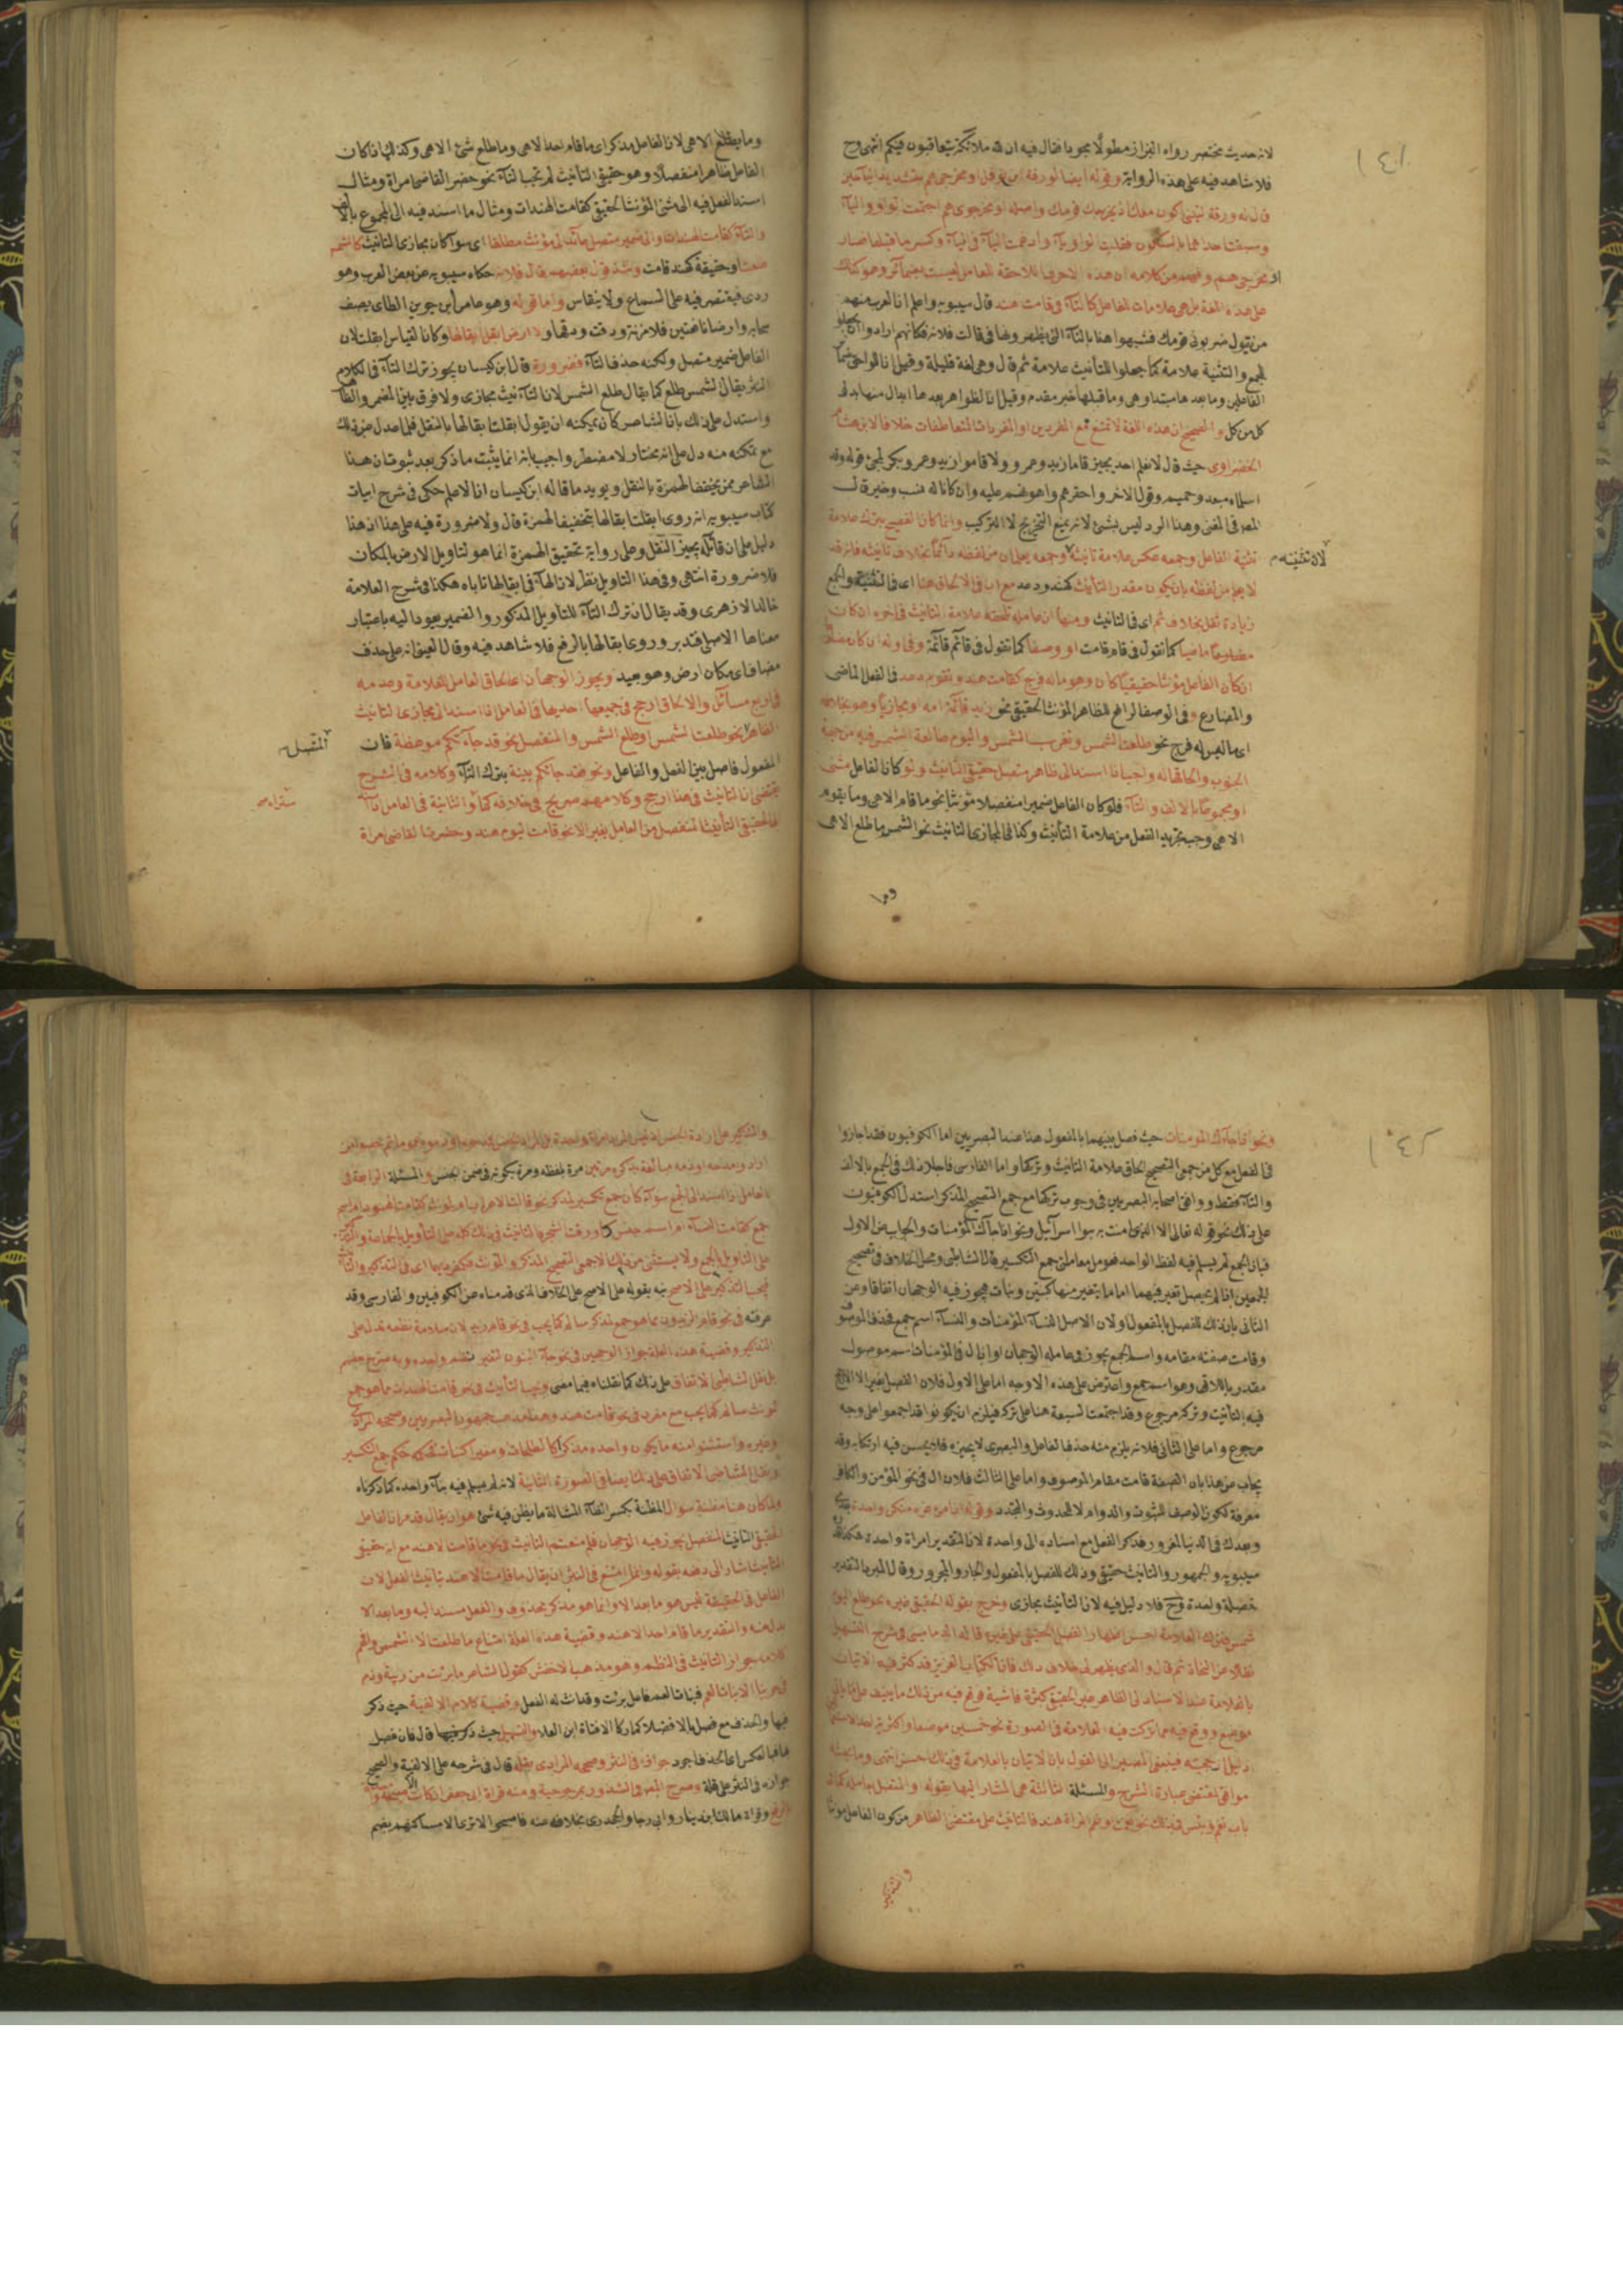 ١٤١
لانه حديث مختصر رواه البزاز مطولا مجودا فقال فيه ان لله ملائكة يتعاقبون فيكم انتهى وح
فلا شاهد فيه على هذه الرواية وقوله ايضا لورقة ابن نوفل او مخرجي هم بتشديد اليا حين
قال له ورقة ليتني اكون معك اذ يخرجك قومك واصله او مخرجوي هم اجتمعت الواو والياء
وسبقت احداهما بالسكون فقلبت الواو ياء وادغمت الياء في الياء وكسر ما قبلها فصار
او مخرجي هم وفهم من كلامه ان هذه الاحرف اللاحقة للعامل ليست بضمائر وهو كذلك
على هذه اللغة بل هي علامات للفاعل كالتاء في قامت هند قال سيبويه واعلم ان العرب منهم
من يقول ضربوني قومك فشبهوا هذا بالتاء التي يظهرونها في قالت فلانة فكانهم ارادوا ان يجعلوا
للجمع والتثنية علامة كما جعلوا للتأنيث علامة ثم قال وهي لغة قليلة وقيل ان اللواحق ضمائر
الفاعلين وما بعدها مبتدا وهي وما قبلها خبر مقدم وقيل ان الظواهر بعدها ابدال منها بدل
كل من كل والصحيح ان هذه اللغة لا تمتنع مع المفردين او المفردات المتعاطفات خلافا لابن هشام
الخضراوي حيث قال لا نعلم احد يجيز قاما زيد وعمرو ولا قاموا زيد وعمرو وبكر لمجئ قوله وقد
اسلماه مبعد وحميم وقول الاخر واحقرهم واهونهم عليه وان كانا له نسب وخير قال
المص في المغني وهذا الرد ليس بشئ لانه يمنع التخريج لا التركيب وانما كان الفصيح بترك علامة
تثنية الفاعل وجمعه عكس علامة تانيثه لان تثنيته وجمعه يعلمان من لفظه دائما بخلاف تانيثه فانه قد
لا يعلم من لفظه بان يكون مقدر التأنيث كهند ودعد مع ان في الالحاق هنا اى في التثنية والجمع
زيادة ثقل بخلاف ثم اى في التانيث ومنها ان عامله تلحقه علامة التانيث في اخره ان كان
ماضيا كما تقول في قام قامت او وصفا كما تقول في قائم قائمة وفي اوله ان كان مضارعا
ان كان الفاعل مؤنثا حقيقيا كان وهو ما له فرج كقامت هند وتقوم دعد في الفعل الماضي
والمضارع وفي الوصف الرافع للظاهر المؤنث الحقيقي نحو زيد قائمة امه او مجازيا وهو بخلافه
اى ما ليس له فرج نحو طلعت الشمس وتغرب الشمس واليوم طالعة الشمس فيه من جهة
الجنوب والحاقها له واجب اذا اسند الى ظاهر متصل حقيقي التانيث ولو كان الفاعل مثنى
او مجموعا بالالف والتاء فلو كان الفاعل ضميرا منفصلا مؤنثا نحو ما قام الا هي وما يقوم
الا هي وجب تجريد الفعل من علامة التأنيث وكذا في المجازي التانيث نحو الشمس ما طلع الا هي
وما
وما يطلع الا هي لان الفاعل مذكر اى ما قام احد الا هي وما طلع شئ الا هي وكذلك اذا كان
الفاعل ظاهرا منفصلا وهو حقيقي التأنيث لم تجب التاء نحو حضر القاضي امراة ومثال
اسند الفعل فيه الى مثنى المؤنث الحقيقي كقامت الهندات ومثال ما اسند فيه الى المجموع بالالف
والتاء كقامت الهندات والى ضمير متصل عائد الى مؤنث مطلقا اى سواء كان مجازي التانيث كالشمس
طلعت او حقيقة كهند قامت وشذ قول بعضهم قال فلانة حكاه سيبويه عن بعض العرب وهو
ردى فيقتصر فيه على السماع ولا ينقاس واما قوله وهو عامر ابن جوين الطائ يصف
سحابه وارضا نافعتين فلا مزنة ودقت ودقها ولا ارض ابقل ابقالها وكان القياس ابقلت لان
الفاعل ضمير متصل ولكنه حذف التاء فضرورة قال ابن كيسان يجوز ترك التاء في الكلام
النثر يقال الشمس طلع كما يقال طلع الشمس لان التانيث مجازي ولا فرق بين المضمر والظاهر
واستدل على ذلك بان الشاعر كان يمكنه ان يقول ابقلت ابقالها بالنقل فلما عدل عن ذلك
مع تمكنه منه دل على انه مختار لا مضطر واجيب بانه انما يثبت ما ذكر بعد ثبوت ان هذا
الشاعر ممن يخفف الهمزة بالنقل ويؤيد ما قاله ابن كيسان ان الاعلم حكى في شرح ابيات
كتاب سيبويه انه روى ابقلت ابقالها بتخفيف الهمزة قال ولا ضرورة فيه على هذا اذ هذا
دليل على ان قائله يجيز النقل وعلى رواية تحقيق الهمزة انما هو لتاويل الارض بالمكان
فلا ضرورة انتهى وفي هذا التاويل نظر لان الهاء في ابقالها تاباه هكذا في شرح العلامة
خالد الازهري وقد يقال ان ترك التاء للتأويل المذكور والضمير يعود اليه باعتبار
معناها الاصلي فتدبر وروى ابقالها بالرفع فلا شاهد فيه وقال العيني انه على حذف
مضاف اى مكان ارض وهو بعيد ويجوز الوجهان اى الحاق العامل العلامة وعدمه
في اربع مسائل والالحاق ارجح في جميعها احديها في العامل اذا اسند الى مجازي التانيث
الظاهر المتصل نحو طلعت الشمس او طلع الشمس والمنفصل نحو قد جاءتكم موعظة فان
المفعول فاصل بين الفعل والفاعل ونحو فقد جاءكم بينة بترك التاء وكلامه في الشرح
يقتضي ان التانيث في هذا ارجح وكلامهم صريح في خلافه كما ستراه والثانية في العامل
الحقيقي التأنيث المنفصل من العامل بغير الا نحو قامت اليوم هند وحضرت القاضي امراة
١٤٢
ونحو اذا جاءك المومنات حيث فصل بينهما بالمفعول هذا عند البصريين اما الكوفيون فقد اجازوا
في الفعل مع كل من جمعي التصحيح الحاق علامة التانيث وتركها واما الفارسي فاجاز ذلك في الجمع بالالف
والتاء فقط ووافق اصحابه البصريين في وجوب تركها مع جمع التصحيح المذكر استدل الكوفيون
على ذلك بنحو قوله تعالى الا الذي امنت به بنوا اسرائيل ونحو اذا جاءك المؤمنات والجواب عن الاول
فبان الجمع لم يسلم فيه لفظ الواحد فعومل معاملة جمع التكسير قال الشاطبي ومحل الخلاف في تصحيح
الجمعين اذا لم يحصل تغير فيهما اما ما يتغير منها كبنين وبنات فيجوز فيه الوجهان اتفاقا وعن
الثاني بان ذلك للفصل بالمفعول او لان الاصل النساء المؤمنات والنساء اسم جمع فحذف الموصوف
وقامت صفته مقامه واسم الجمع يجوز في عامله الوجهان او ان ال في المؤمنات اسم موصول
مقدر باللاتي وهو اسم جمع واعترض على هذه الاوجه اما على الاول فلان الفصل بغير الا الارجح
فيه التأنيث وتركه مرجوح وقد اجتمعت السبعة هنا على تركه فيلزم ان يكونوا قد اجمعوا على وجه
مرجوح واما على الثاني فلانه يلزم منه حذف الفاعل والبصرى لا يجيزه فلا يحسن فيه ارتكابه وقد
يجاب عن هذا بان الصفة قامت مقام الموصوف واما على الثالث فلان ال في نحو المؤمن والكافر
معرفة لكون الوصف للثبوت والدوام لا للحدوث والتجدد وقوله ان امرء غره منكن واحدة بعدي
وبعدك في الدنيا لمغرور فذكر الفعل مع اسناده الى واحدة لان التقدير امراة واحدة هكذا قدره
سيبويه والجمهور والتانيث حقيقي وذلك للفصل بالمفعول والجار والمجرور وقال المبرد التقدير
خصلة واحدة وح فلا دليل فيه لان التأنيث مجازى وخرج بقوله الحقيقي غيره نحو طلع اليوم
شمس فترك العلامة احسن اظهارا لفضل الحقيقي على غيره قاله الدماميني في شرح التسهيل
نقلا عن النحاة ثم قال والذى يظهر لي خلاف ذلك فان الكتاب العزيز قد كثر فيه الاتيان
بالعلامة عند الاسناد الى الظاهر غير الحقيقي كثرة فاشية فوقع فيه من ذلك ما ينيف على مايتي
موضع ووقع فيه مما تركت فيه العلامة في الصورة نحو خمسين موضعا واكثرية احد الاستعمالين
دليل ارجحيته فينبغي المصير الى القول بان الاتيان بالعلامة في ذلك احسن انتهى وما بحثه
موافق لمقتضى عبارة الشرح والمسئلة الثالثة هي المشار اليها بقوله او المتصل بعامله كما في
باب نعم وبئس في ذلك نحو نعمت او نعم المراة هند فالتانيث على مقتضى الظاهر من كون الفاعل مؤنثا
والتذكير
والتذكير على ارادة الجنس اذ ليس المراد امراة واحدة بل المراد الجنس
ارادوا مدحه او ذمه مبالغة بذكره مرتين مرة بلفظه ومرة بكونه في ضمن الجنس والمسئلة الرابعة في
العامل اذا اسند الى الجمع سواء كان جمع تكسير لمذكر نحو قالت الاعراب او لمؤنث كقامت الهنود او اسم
جمع كقامت النساء او اسم جنس كاورقت الشجر فالتانيث في ذلك كله على التأويل بالجماعة والتذكير
على التاويل بالجمع ولا يستثنى من ذلك الا جمعي التصحيح المذكر والمونث فكمفرديهما اى في التذكير والتأنيث
فيجب التذكير على الاصح نبه بقوله على الاصح على الخلاف الذي قدمناه عن الكوفيين والفارسي وقد
عرفته في نحو قام الزيدون مما هو جمع لمذكر سالم كما يجب في نحو قام زيد لان سلامة نظمه تدل على
التذكير وقضية هذه العلة جواز الوجهين في نحو جاء البنون لتغير نظم واحده وبه صرح بعضهم
بل نقل الشاطبي الاتفاق على ذلك كما نقلناه فيما مضى ويجب التأنيث في نحو قامت الهندات مما هو جمع
لمونث سالم كما يجب مع مفرده في نحو قامت هند وهذا مذهب جمهور البصريين وصححه المرادي
وغيره واستثنوا منه ما يكون واحده مذكرا كالطلحات ومغيرا كبنات فحكمه حكم جمع التكسير
ونقل الشاطبي الاتفاق على ذلك ايضا في الصورة الثانية لانه لم يسلم فيه بناء واحده كما ذكرناه
ولما كان هنا مظنة سوال المظنة بكسر الظاء المشالة ما يظن فيه شئ هو ان يقال قد مر ان الفاعل
الحقيقي التانيث المنفصل يجوز فيه الوجهان فلم منعتم التانيث في نحو ما قامت الا هند مع انه حقيقي
التانيث اشار الى دفعه بقوله وانما امتنع في النثر ان يقال ما قامت الا هند بتانيث الفعل لان
الفاعل في الحقيقة ليس هو ما بعد الا وانما هو مذكر محذوف والفعل مسند اليه وما بعد الا
بدل منه والتقدير ما قام احد الا هند وقضية هذه العلة امتناع ما طلعت الا الشمس وافهم
كلامه جواز التانيث في النظم وهو مذهب الاخفش كقول الشاعر ما برئت من ريبة وذم
في حربنا الا بنات العم فبنات العم فاعل برئت وقد انث له الفعل وقضية كلام الالفية حيث ذكر
فيها والحذف مع فصل بالا فضلا كما زكا الا فتاة ابن العلا والتسهيل حيث ذكر فيها قال فان فصل
بها فبالعكس اى الحذف اجود جوازه في النثر وصححه المرادي بقلة قال في شرحه على الالفية والصحيح
جوازه في النثر على قلة وصرح المص في الشذور بمرجوحية ومنه قراة ابي جعفر ان كانت الا صيحة واحدة
بالرفع وقراة مالك ابن دينار وابي رجا والجحدري بخلاف عنه فاصبحوا لا ترى الا مساكنهم بضم